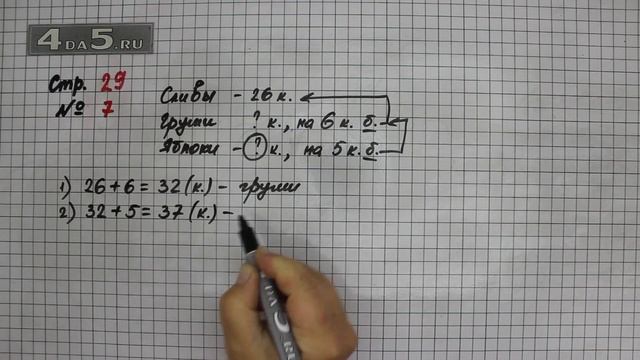 4DA5.RU
Стр. 29
№ 7
Сливы - 26 к.
Груши ? к., на 6 к. б.
Яблоки - ? к., на 5 к. б.
1) 26 + 6 = 32 (к.) - груши
2) 32 + 5 = 37 (к.) -
DA5.RU